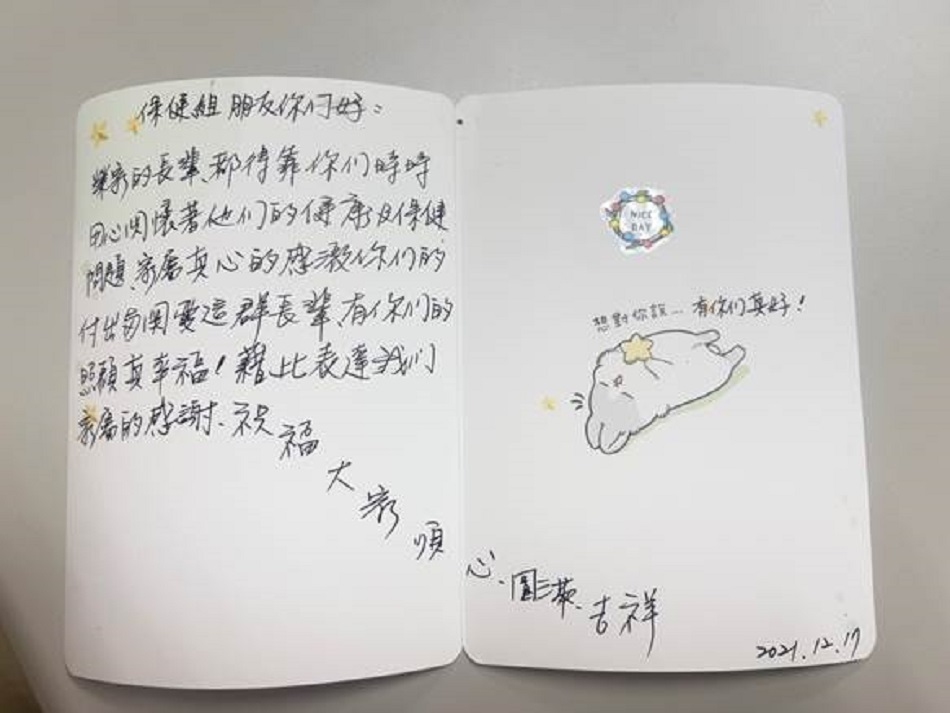 保健組朋友你们好:
樂家的長輩、都得靠你们時時
用心関懷著他们的健康及保健
問題、家屬真心的感激你们的
付出與関愛這群長輩、有你们的
照顧真幸福!藉此表達我们
家屬的感謝、祝福大家順心、圓滿、吉祥
NICE
DAY
想對你說...有你们真好!
2021.12.17